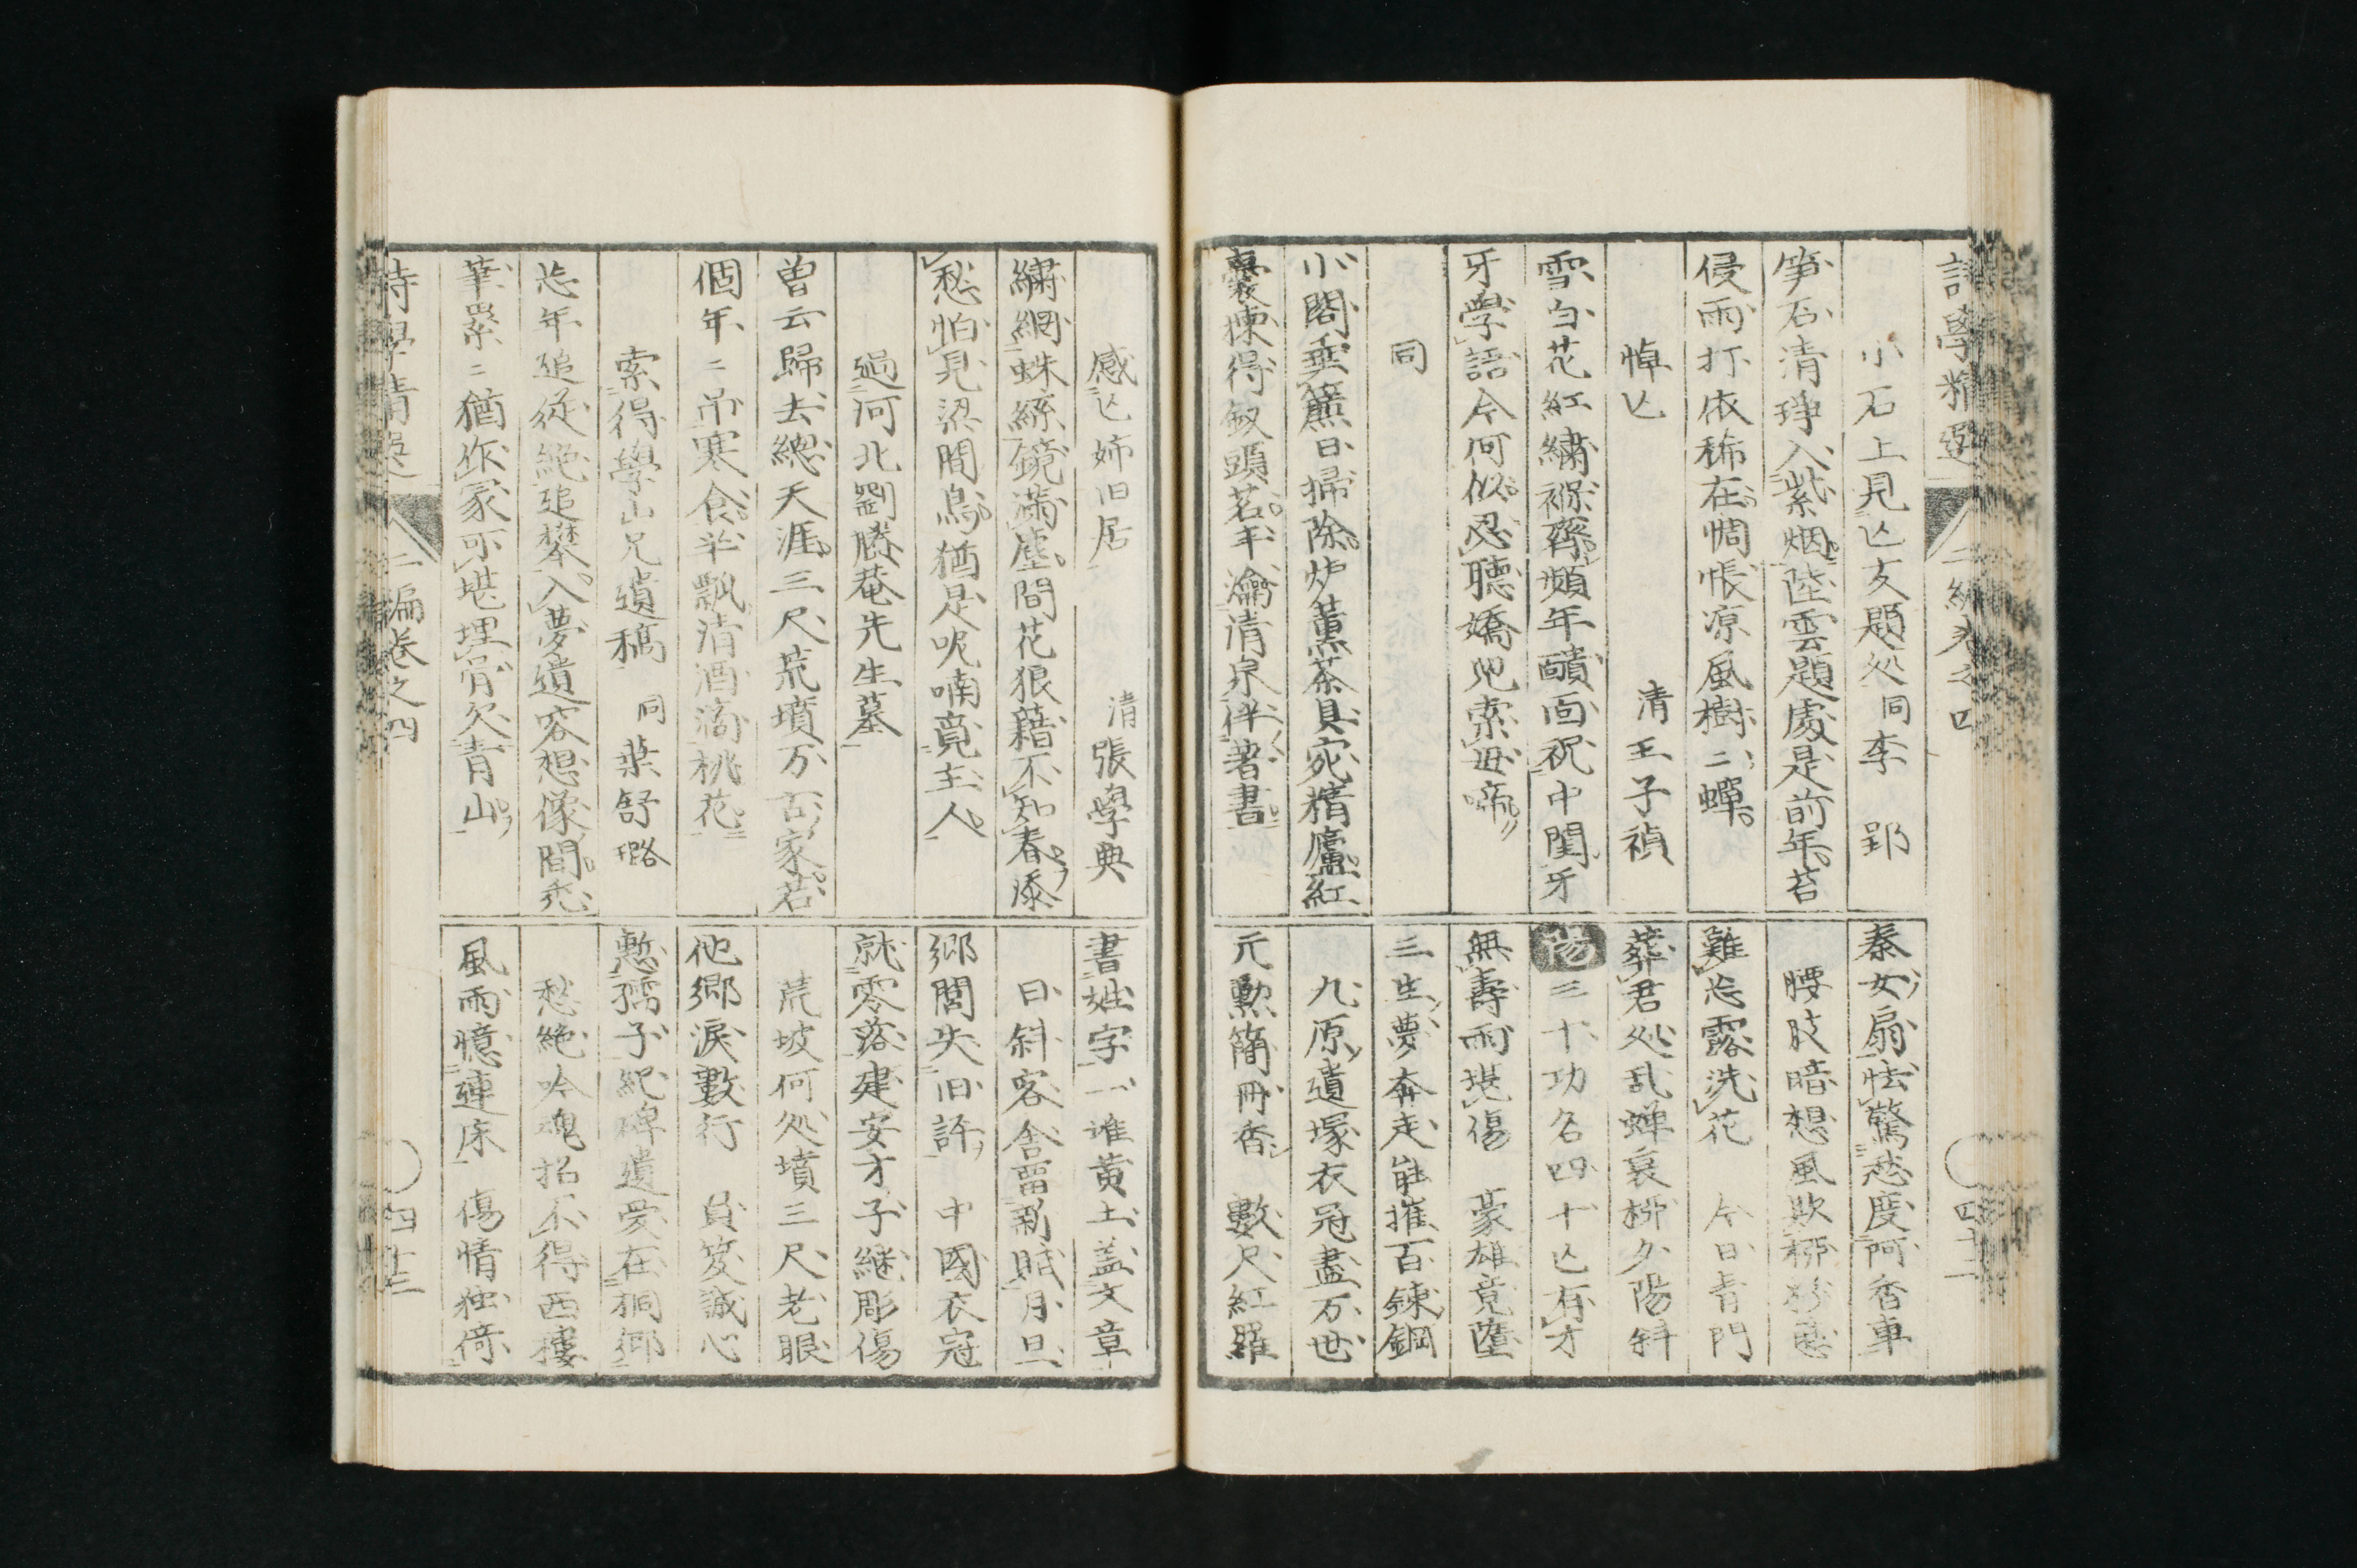 小石上見亡友題処 同李郢
笋石清琤入紫烟陸雲題處是前年苔
侵雨打依稀在惆悵凉風樹〻蟬
悼亡 清王子禎
雪白花紅繍褓齊頻年靧面祝中閨牙
牙學語今何似忍聴嬌児索母啼
同
小閣垂簾日掃除炉薫茶具宛精廬紅
嚢揀得釵頭茗手瀹清泉伴著書
秦女扇怯驚愁度阿香車
腰肢暗想風欺柳粉態
難忘露洗花 今日青門
葬君処乱蝉衰柳夕陽斜
傷 三十功名四十亡有才
無壽耐堪傷 豪雄竟墮
三生夢奔走能摧百錬鋼
九原遺塚衣冠盡万世
元勲簡冊香 數尺紅羅
感亡姉旧居 清張學典
繍網蛛絲鏡滿塵間花狼藉不知春添
愁怕見梁間鳥猶是呢喃竟主人
過河北劉勝菴先生墓
曽云歸去總天涯三尺荒墳万古家若
個年〻吊寒食半瓢清酒滴桃花
索得學山兄遺稿 同葉舒璐
忘年追従絶追攀入夢遺容想像間禿
筆累〻猶作冢可堪埋骨欠青山
書姓字一堆黄土盖文章
日斜客舎畱新賦月旦
郷閭失旧許 中國衣冠
就零落建安才子継彫傷
荒坡何処墳三尺老眼
他郷涙數行 負笈誠心
慙孺子紀碑遺愛在桐郷
愁絶吟魂招不得西樓
風雨憶連床 傷情独倚
詩學精選 二編卷之四 四十二
詩學精選 二編卷之四 四十三